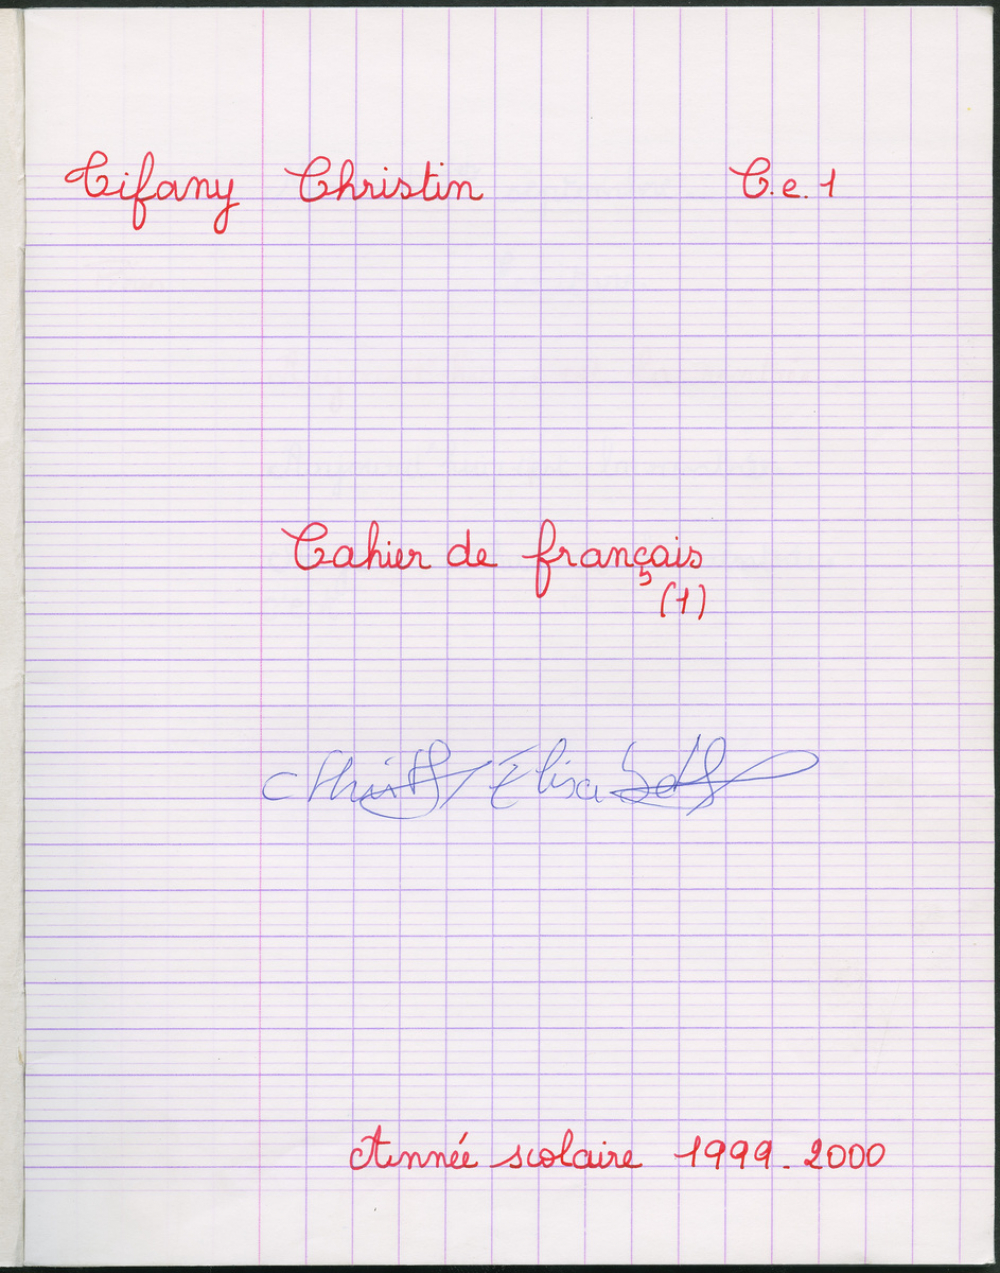 Tifany Christin C.e.1
Cahier de français
(1)
Elisabeth
Année scolaire 1999-2000